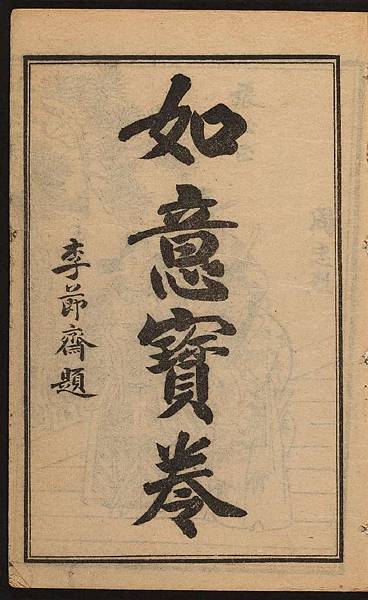 如意寶卷
李節齋題